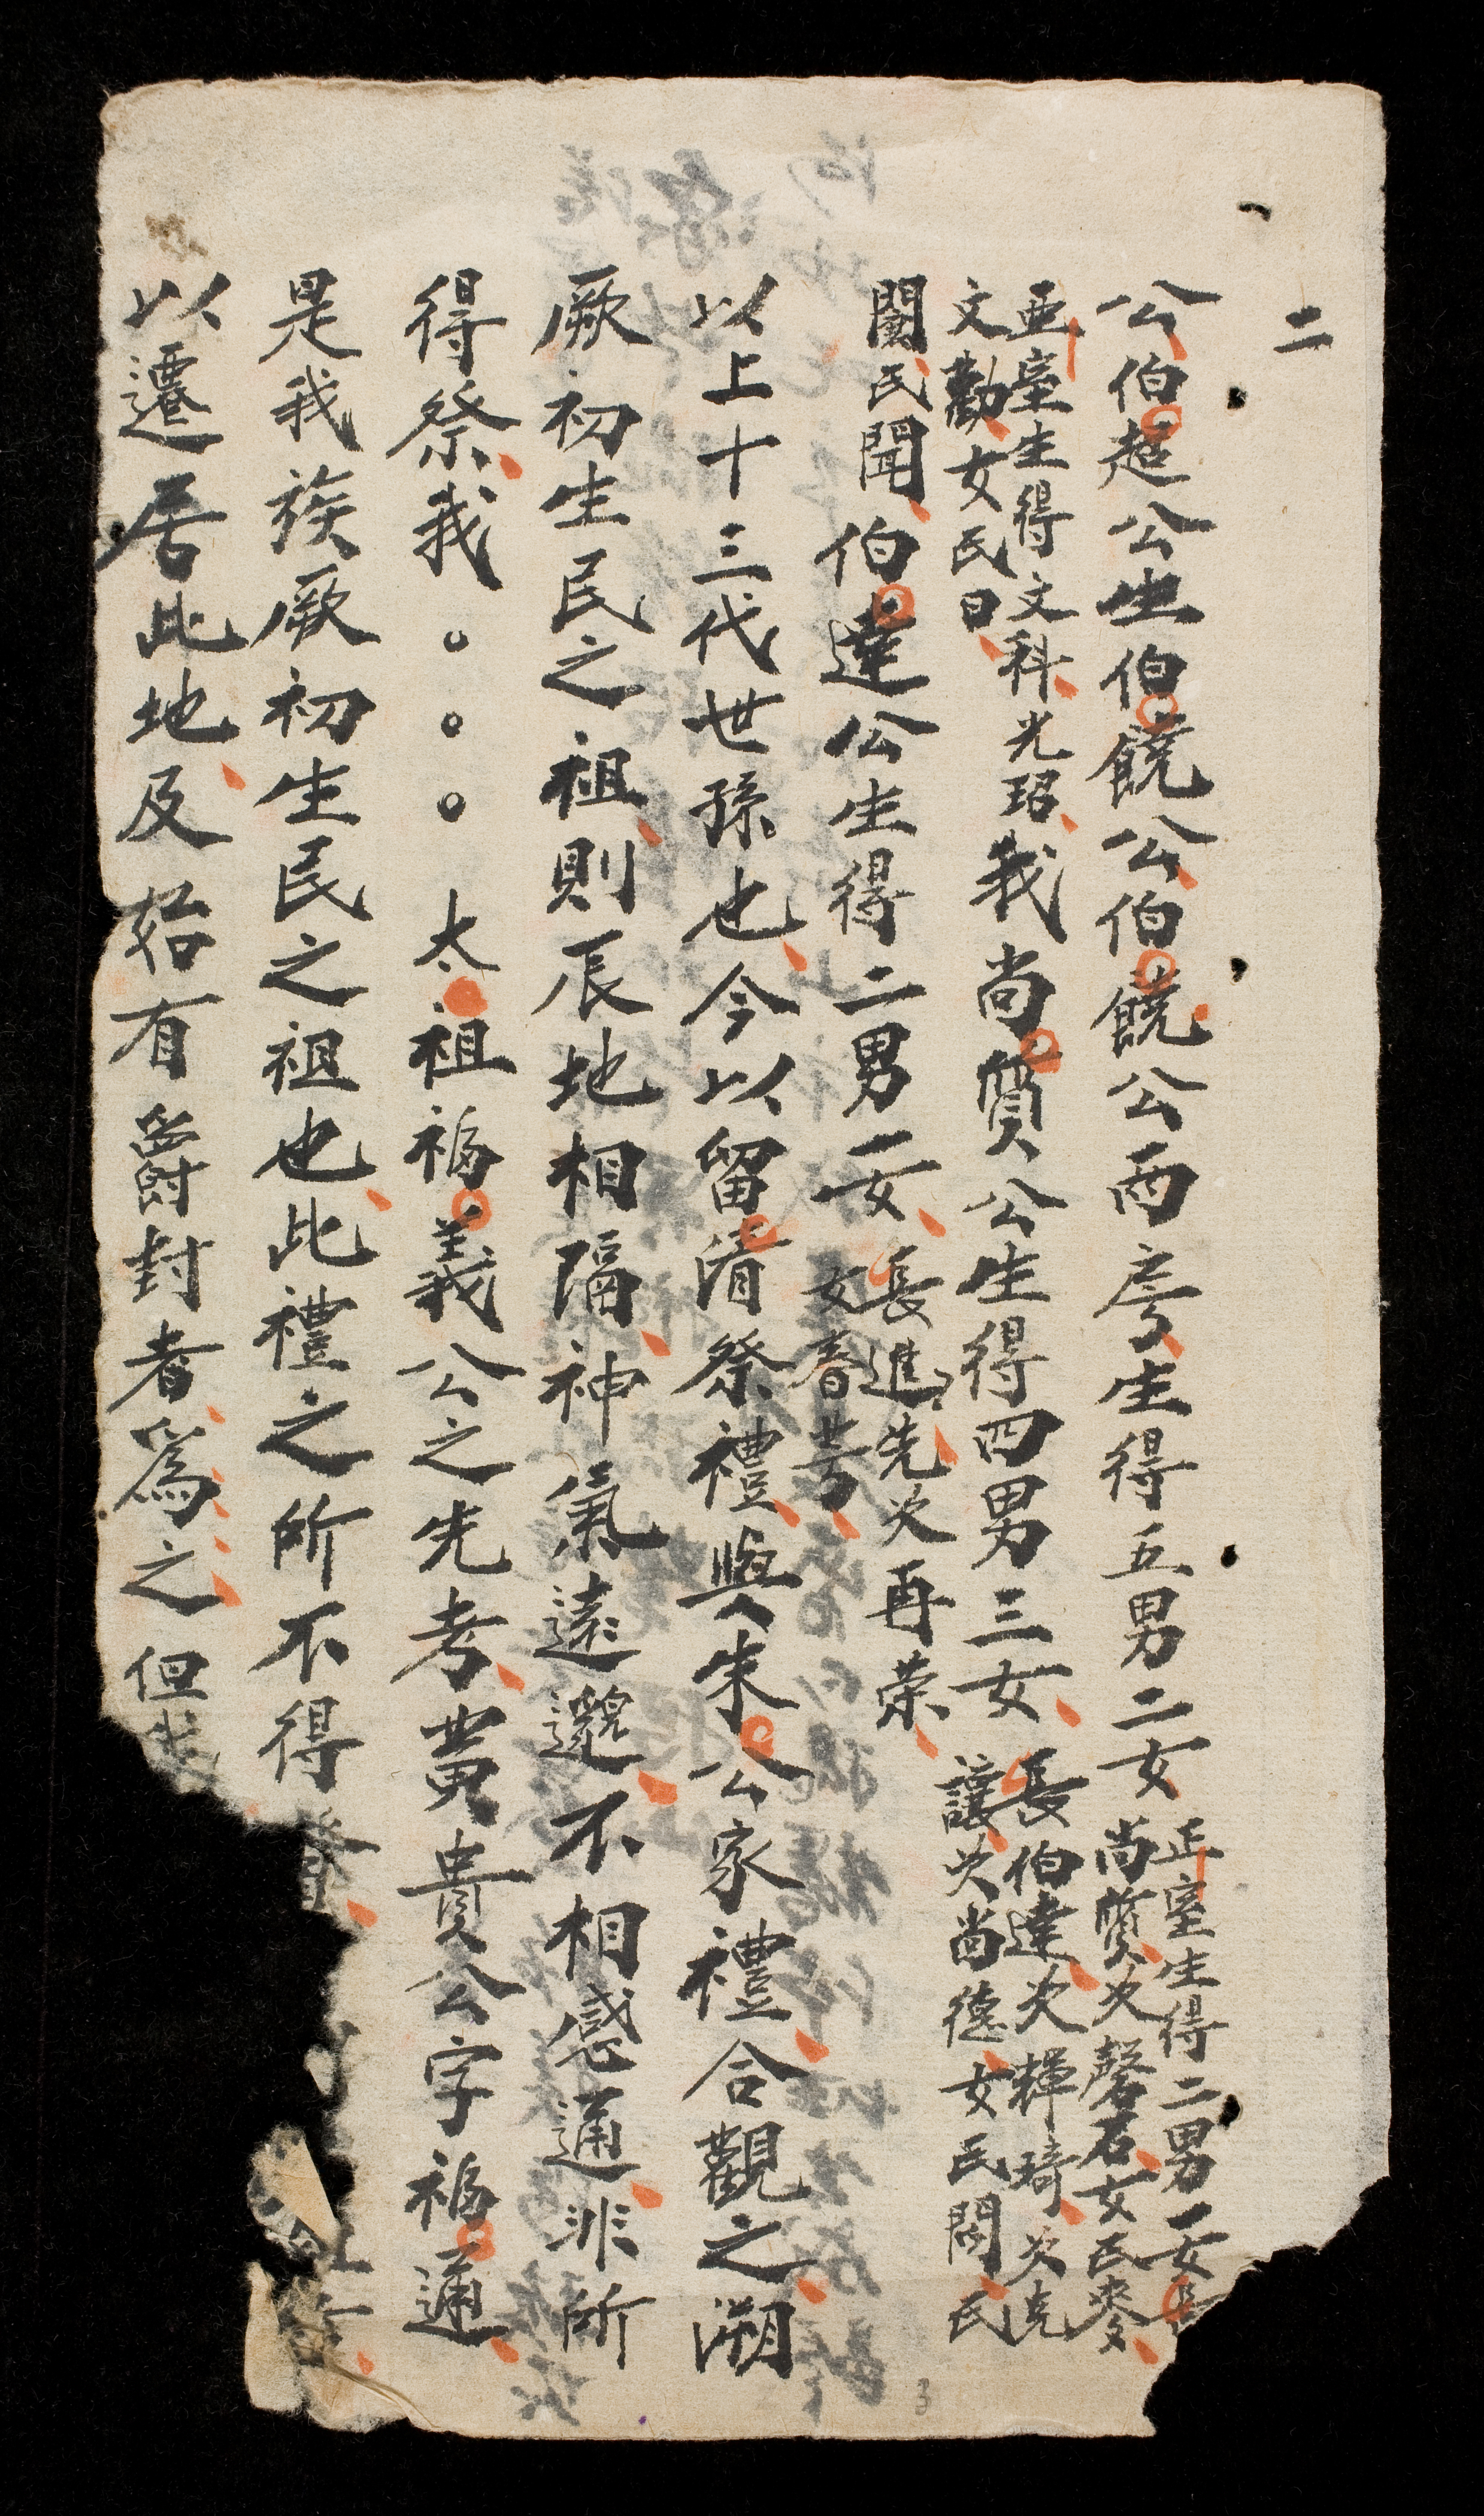 二
公伯超公生伯饒公伯饒公両房生得五男二女
正室生得二男一女長
尚質次磬石女氏麥
亜室生得文科光玿
文勸女氏日
我尚質公生得四男三女
長伯達次輝琦次克
讓次尚德女氏閣氏
闌氏聞
伯達公生得二男一女
長進先次再荣
女春芳
以上十三代世孫也今以留清祭禮與朱公家禮合觀之溯
厥初生民之祖則辰地相隔神氣遠邈不相感通非所
得祭我○○○太祖福義公之先考黄貴公字福通
是我族厥初生民之祖也此禮之所不得
以遷居此地及始有爵封者爲之但我